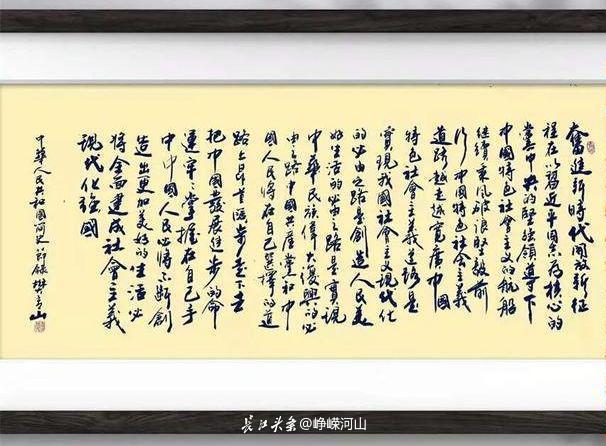 奮進新時代開啟新征
程在以習近平同志為核心的
黨中央的堅强領導下
中國特色社會主义的航船
继續乘风破浪堅毅前
行中國特色社會主義
道路越走越寬廣中國
特色社會主義道路是
實現我國社會主义現代化
的必由之路是創造人民美
好生活的必由之路是實現
中華民族偉大復興的必
由之路中國共產黨和中
國人民將在自己選擇的道
路上昂首阔步走下去
把中國發展進步的命
運牢牢掌握在自己手
中中國人民必將不斷創
造出更加美好的生活必
將全面建成社會主義
現代化强國
中華人民共和國简史節錄 山
长江头条@峥嵘河山